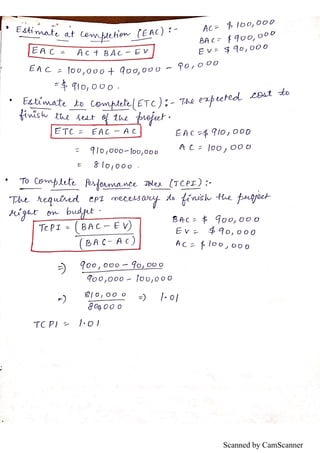 • Estimate at Completion (EAC) :-
AC = $ 100,000
BAC = $ 900,000
EV = $ 90,000
EAC = AC + BAC - EV
EAC = 100,000 + 900,000 - 90,000
= $ 910,000.
• Estimate to Complete (ETC) :- The expected cost to
finish the rest of the project.
ETC = EAC - AC
EAC = $ 910,000
AC = 100,000
= 910,000-100,000
= 810,000.
• To Complete Performance Index (TCPI) :-
The required CPI necessary to finish the project
right on budget.
TCPI = (BAC - EV)
(BAC - AC)
BAC = $ 900,000
EV = $ 90,000
AC = $ 100,000
=) 900,000 - 90,000
900,000 - 100,000
=) 810,000 =) 1.01
800000
TCPI = 1.01
Scanned by CamScanner